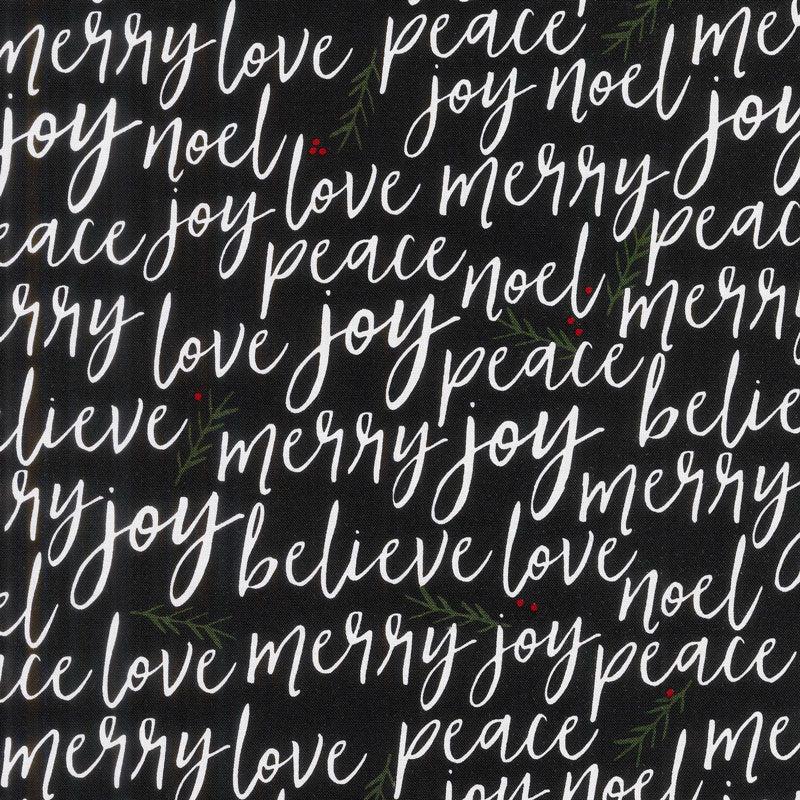 merry love peace me
joy noel joy noel joy
love merry
eace joy peac
peace noel
erry love joy merry
peace
elieve merry joy belie
erry joy merry
believe love
el noel
ace love merry joy peace
merry love peace me
joy noel